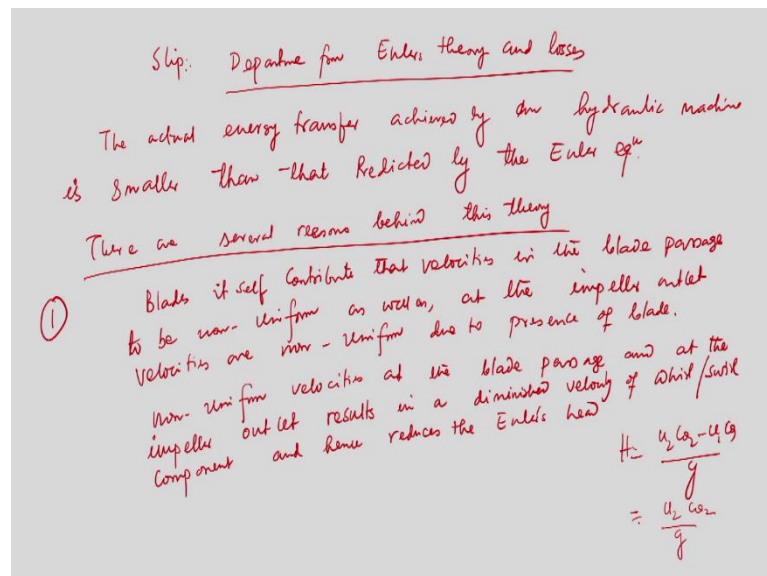 Slip: Departure from Euler's theory and losses
The actual energy transfer achieved by an hydraulic machine
is smaller than that Predicted by the Euler eqⁿ.
There are several reasons behind this theory
① Blades it self Contribute that velocities in the blade passage
to be non-uniform as well as, at the impeller outlet
velocities are non-uniform due to presence of blade.
non-uniform velocities at the blade passage and at the
impeller outlet results in a diminished velocity of whirl/swirl
component and hence reduces the Euler's head
H = u₂cθ₂-u₁cθ₁/g
= u₂cθ₂/g